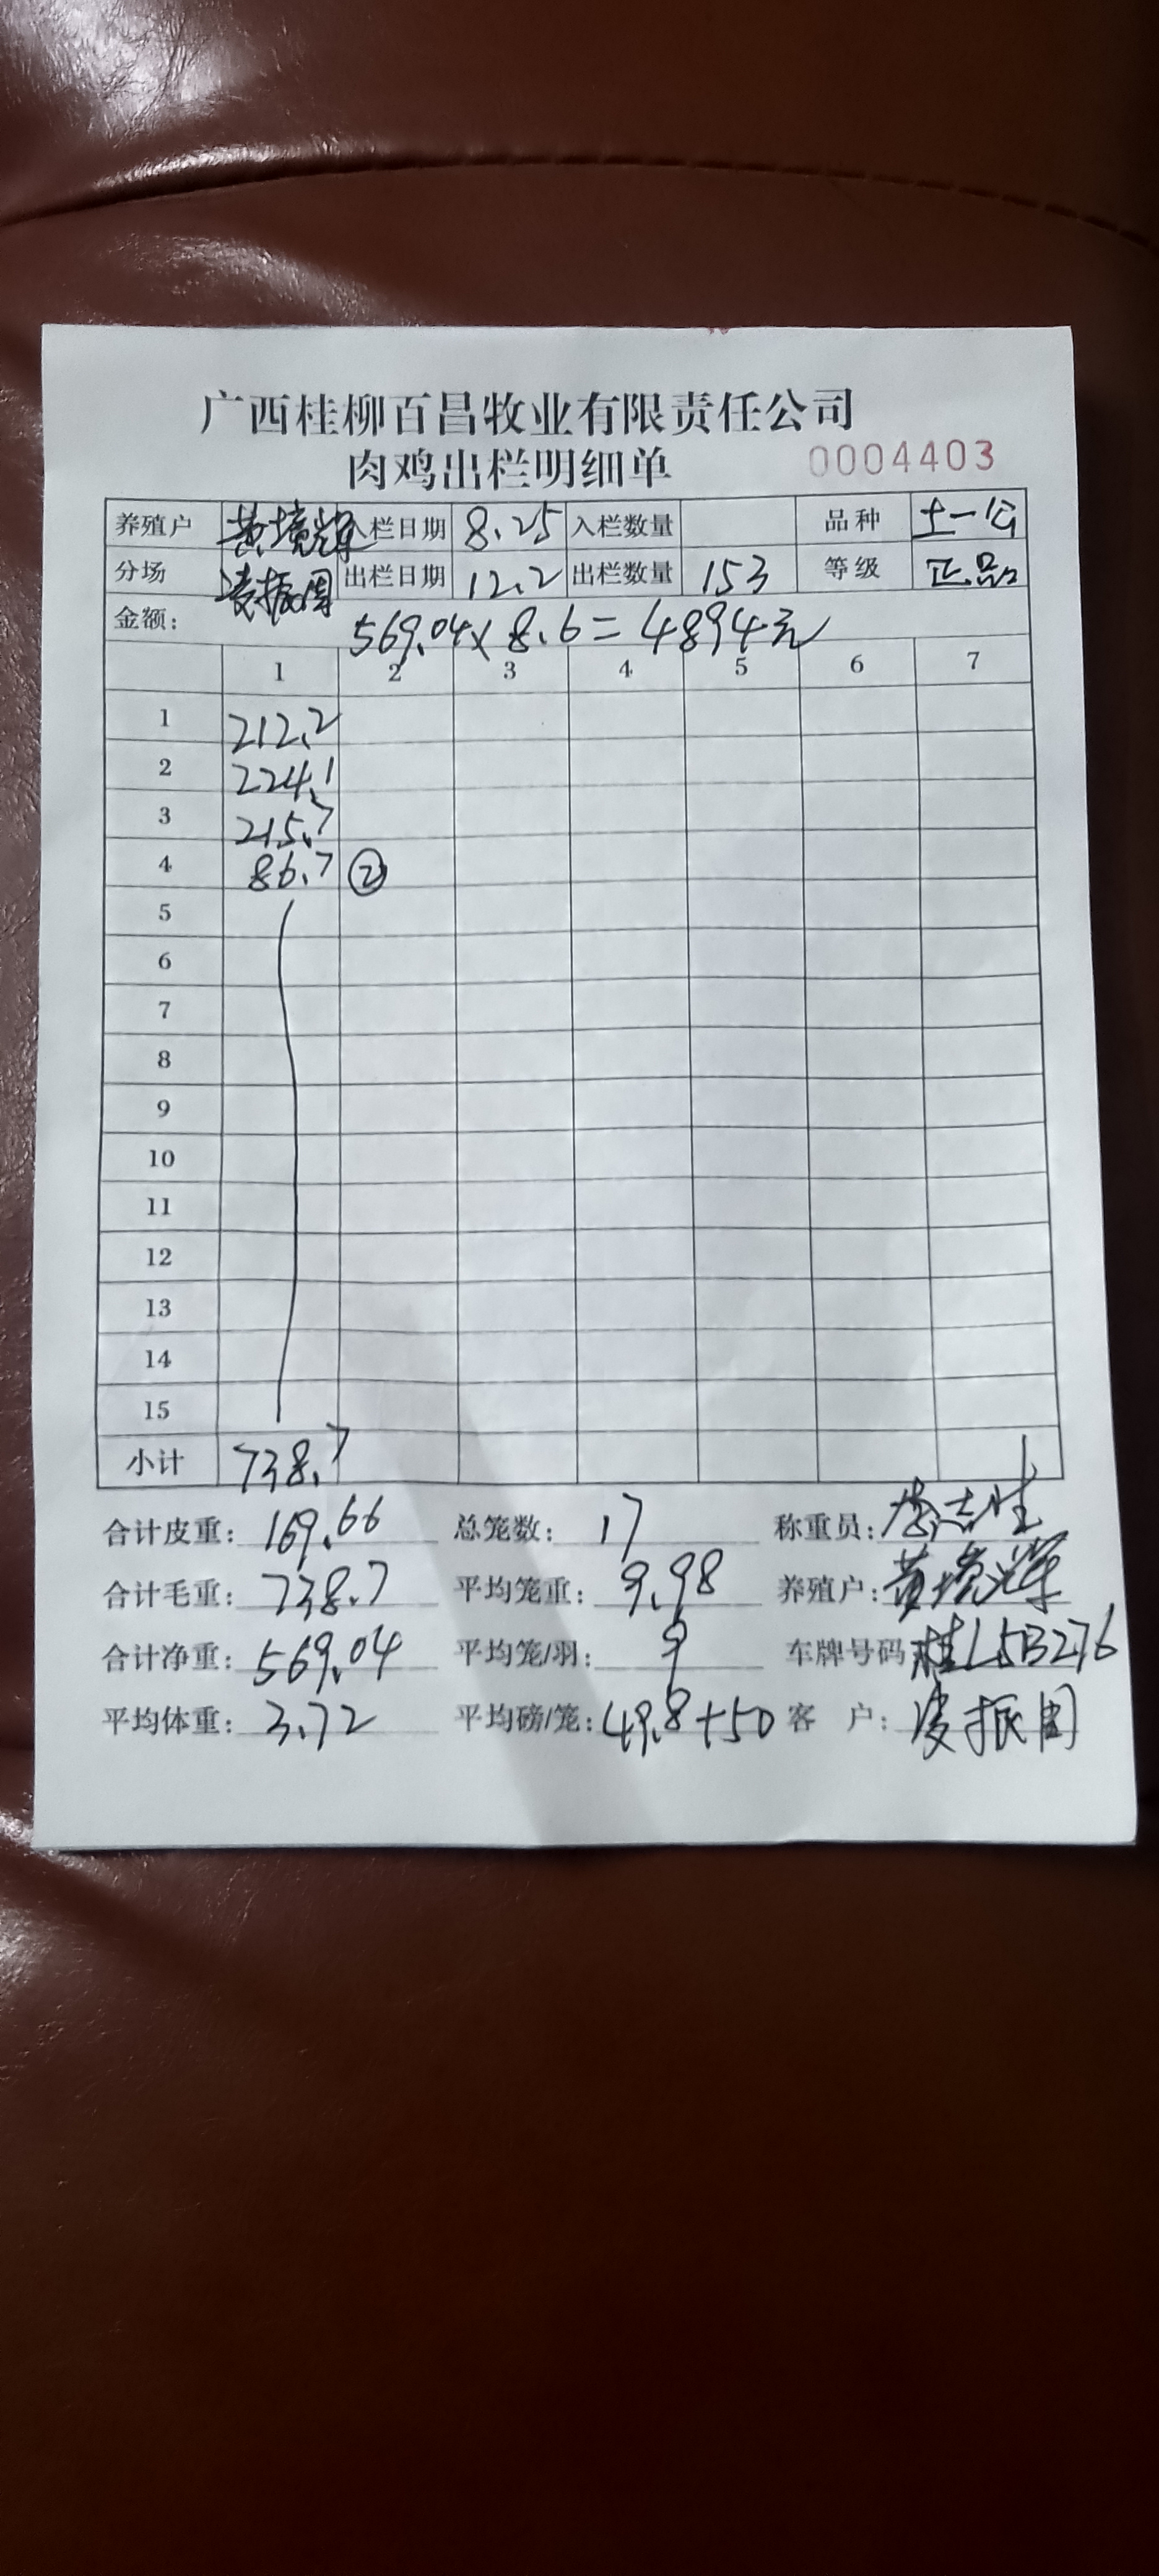 广西桂柳百昌牧业有限责任公司
肉鸡出栏明细单 0004403
养殖户 黄境辉 入栏日期 8.25 入栏数量 品种 土一公
分场 凌振周 出栏日期 12.2 出栏数量 153 等级 正品
金额: 569.04×8.6=4894元
1 2 3 4 5 6 7
1 212.2
2 224.1
3 215.7
4 86.7 ②
5
6
7
8
9
10
11
12
13
14
15
小计 738.7
合计皮重: 169.66 总笼数: 17 称重员:
合计毛重: 738.7 平均笼重: 9.98 养殖户: 黄境辉
合计净重: 569.04 平均笼/羽: 9 车牌号码 桂L5B276
平均体重: 3.72 平均磅/笼: 49.8+50 客 户: 凌振周